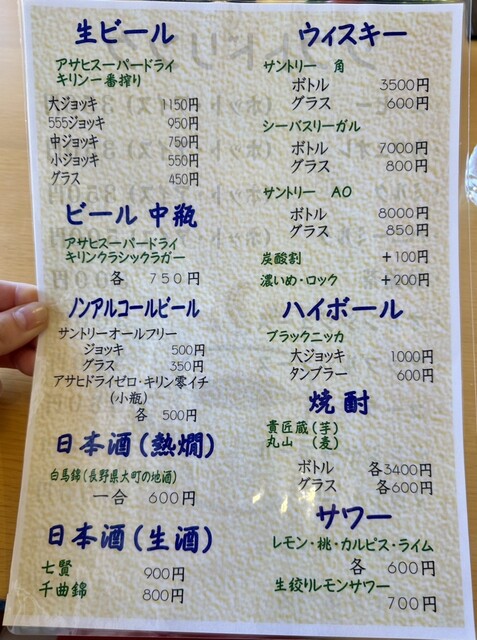 生ビール
アサヒスーパードライ
キリン一番搾り
大ジョッキ 1150円
555ジョッキ 950円
中ジョッキ 750円
小ジョッキ 550円
グラス 450円
ビール 中瓶
アサヒスーパードライ
キリンクラシックラガー
各 750円
ノンアルコールビール
サントリーオールフリー
ジョッキ 500円
グラス 350円
アサヒドライゼロ・キリン零イチ
(小瓶)
各 500円
日本酒(熱燗)
白馬錦(長野県大町の地酒)
一合 600円
日本酒(生酒)
七賢 900円
千曲錦 800円
ウィスキー
サントリー 角
ボトル 3500円
グラス 600円
シーバスリーガル
ボトル 7000円
グラス 800円
サントリー AO
ボトル 8000円
グラス 850円
炭酸割 +100円
濃いめ・ロック +200円
ハイボール
ブラックニッカ
大ジョッキ 1000円
タンブラー 600円
焼酎
貴匠蔵(芋)
丸山 (麦)
ボトル 各3400円
グラス 各600円
サワー
レモン・桃・カルピス・ライム
各 600円
生絞りレモンサワー
700円